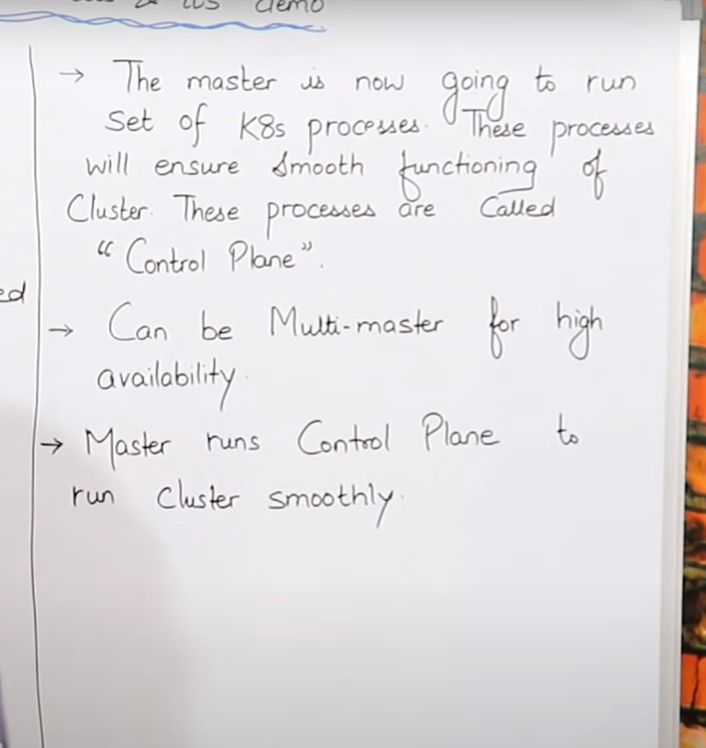 demo
→ The master is now going to run
Set of K8s processes. These processes
will ensure smooth functioning of
Cluster. These processes are Called
"Control Plane".
ed
→ Can be Multi-master for high
availability.
→ Master runs Control Plane to
run Cluster smoothly.